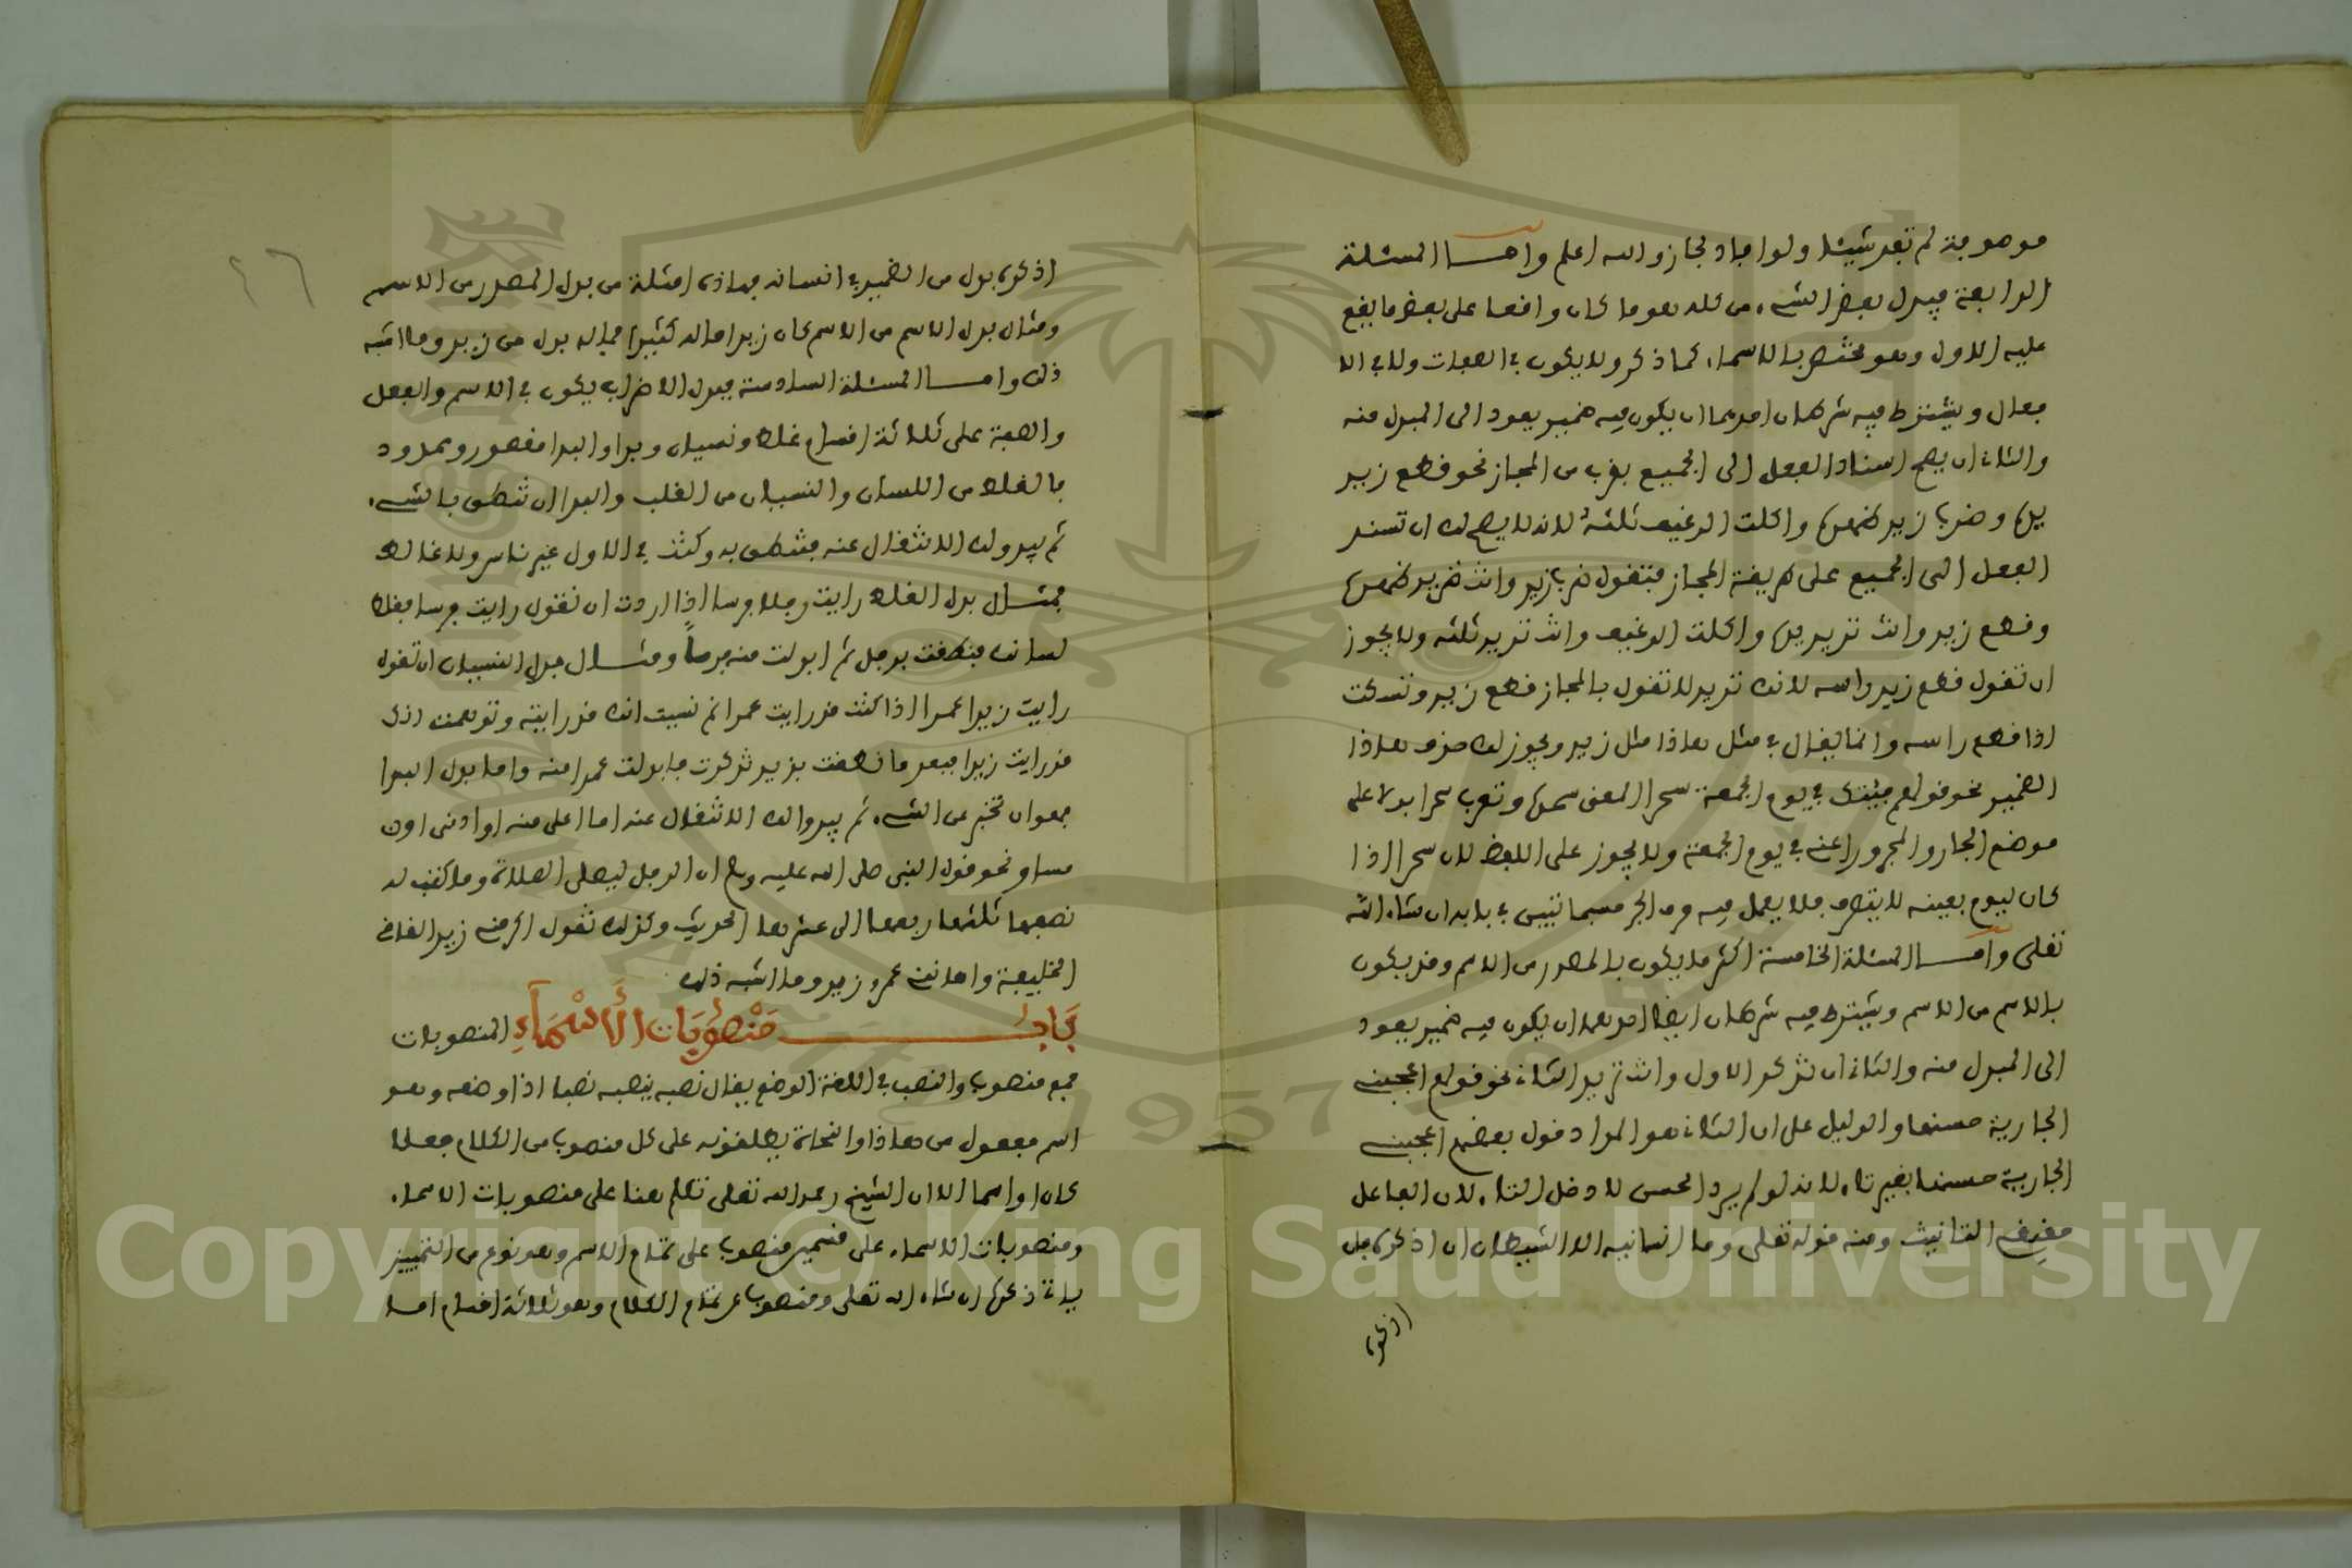 موصوفة لم تفد شيئا ولو افاد لجاز والله اعلم واما المسئلة
الرابعة فبدل بعض الشيء من كله وهو ما كان واقعا على بعض ما يقع
عليه الاول وهو مختص بالاسماء كما ذكر ولا يكون في الصفات ولا في الا
فعال ويشترط فيه شرطان احدهما ان يكون فيه ضمير يعود الى المبدل منه
والثاني ان يصح اسناد الفعل الى الجميع بقرب من المجاز نحو قطع زيد
يده وضرب زيد ظهره واكلت الرغيف ثلثه لانه لا يصح لك ان تسند
الفعل الى الجميع على طريقة المجاز فتقول ضرب زيد وانت تريد ظهره
وقطع زيد وانت تريد يده واكلت الرغيف وانت تريد ثلثه ولا يجوز
ان تقول قطع زيد راسه لانك تريد لا تقول بالمجاز قطع زيد وتسكت
اذا قطع راسه وانما يقال في مثل هاذا مثل زيد ويجوز لك حذف هاذا
الضمير نحو قولهم جيتك في يوم الجمعة سحرا المعنى سحره وتعرب سحرا بدلا على
موضع الجار والمجرور اعني في يوم الجمعة ولا يجوز على اللفظ لان سحرا اذا
كان ليوم بعينه لا يتصرف فلا يعمل فيه حرف الجر حسبما تبين في بابه ان شاء الله
تعلى واما المسئلة الخامسة اكثر ما يكون بالمصدر من الاسم وقد يكون
بالاسم من الاسم ويشترط فيه شرطان ايضا احدهما ان يكون فيه ضمير يعود
الى المبدل منه والثاني ان تذكر الاول وانت تريد الثاني نحو قولهم اعجبني
الجارية حسنها والدليل على ان الثاني هو المراد قول بعضهم اعجبني
الجارية حسنها بغير تاء لانه لو لم يرد الحسن لادخل التاء لان الفاعل
حقيقي التانيث ومنه قوله تعلى وما انسانيه الا الشيطان ان اذكره فان
اذكره
٤٦
اذكره بدل من الضمير في انسانه فهاذه امثلة من بدل المصدر من الاسم
ومثال بدل الاسم من الاسم كان زيد ماله كثيرا فماله بدل من زيد وما اشبه
ذلك واما المسئلة السادسة فبدل الاضراب يكون في الاسم والفعل
والصفة على ثلاثة اقسام غلط ونسيان وبدا والبدا مقصور وممدود
فالغلط من اللسان والنسيان من القلب والبدا ان تنطق بالشيء
ثم يبدو لك الانتقال عنه فتنطق به وكنت في الاول غير ناس ولا غالط
فمثال بدل الغلط رايت رجلا فرسا اذا اردت ان تقول رايت فرسا فغلط
لسانك فنطقت برجل ثم ابدلت منه فرسا ومثال بدل النسيان ان تقول
رايت زيدا عمرا اذا كنت قد رايت عمرا ثم نسيت انك قد رايته وتوهمت انك
قد رايت زيدا فبعد ما نطقت بزيد تذكرت فابدلت عمرا منه واما بدل البدا
فهو ان تخبر عن الشيء ثم يبدوا لك الانتقال عنه اما اعلى منه او ادنى او
مساو نحو قول النبي صلى الله عليه وسلم ان الرجل ليصلي الصلاة وما كتب له
نصفها ثلثها ربعها الى عشرها الحديث وكذلك تقول اكرمني زيد القاضي
الخليفة واهانني عمرو زيد وما اشبه ذلك
بَابُ مَنْصُوبَاتِ الْأَسْمَآءِ المنصوبات
جمع منصوب والنصب في اللغة الوضع يقال نصبه ينصبه نصبا اذا وضعه وهو
اسم مفعول من هاذا والنحاة يطلقونه على كل منصوب من الكلام فعلا
كان او اسما الا ان الشيخ رحمه الله تعلى تكلم هنا على منصوبات الاسماء
ومنصوبات الاسماء على قسمين منصوب على تمام الاسم وهو نوع من التمييز
ياتي ذكره ان شاء الله تعلى ومنصوب عن تمام الكلام وهو ثلاثة اقسام اما
Copyright © King Saud University
1957